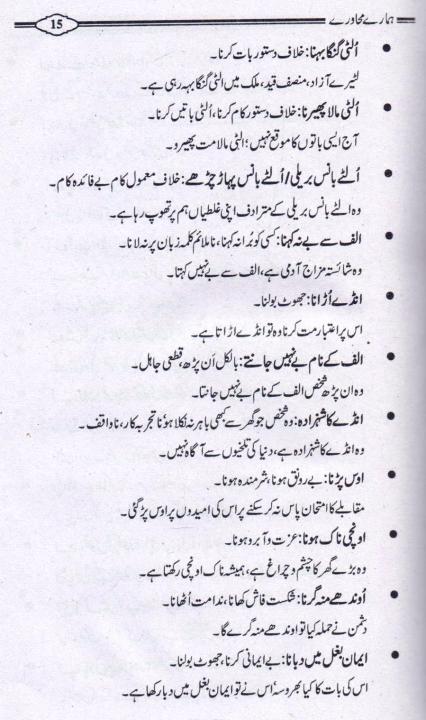 ہمارے محاورے 15
اُلٹی گنگا بہنا: خلاف دستور بات کرنا۔
لٹیرے آزاد، منصف قید، ملک میں الٹی گنگا بہہ رہی ہے۔
اُلٹی مالا پھیرنا: خلاف دستور کام کرنا، اُلٹی باتیں کرنا۔
آج ایسی باتوں کا موقع نہیں؛ الٹی مالا مت پھیرو۔
اُلٹے بانس بریلی/ اُلٹے بانس پہاڑ چڑھے: خلاف معمول کام بے فائدہ کام۔
وہ الٹے بانس بریلی کے مترادف اپنی غلطیاں ہم پر تھوپ رہا ہے۔
الف سے بے نہ کہنا: کسی کو بُرا نہ کہنا، ناملائم کلمہ زبان پر نہ لانا۔
وہ شائستہ مزاج آدمی ہے، الف سے بے نہیں کہتا۔
انڈے اُڑانا: جھوٹ بولنا۔
اس پر اعتبار مت کرنا وہ تو انڈے اڑاتا ہے۔
الف کے نام بے نہیں جانتے: بالکل اَن پڑھ، قطعی جاہل۔
وہ ان پڑھ شخص الف کے نام بے نہیں جانتا۔
انڈے کا شہزادہ: وہ شخص جو گھر سے کبھی باہر نہ نکلا ہو، نا تجربہ کار، نا واقف۔
وہ انڈے کا شہزادہ ہے، دنیا کی تلخیوں سے آگاہ نہیں۔
اوس پڑنا: بے رونق ہونا، شرمندہ ہونا۔
مقابلے کا امتحان پاس نہ کر سکنے پر اس کی امیدوں پر اوس پڑ گئی۔
اونچی ناک ہونا: عزت و آبرو ہونا۔
وہ بڑے گھر کا چشم و چراغ ہے، ہمیشہ ناک اونچی رکھتا ہے۔
اُوندھے منہ گرنا: شکست فاش کھانا، ندامت اُٹھانا۔
دشمن نے حملہ کیا تو اوندھے منہ گرے گا۔
ایمان بغل میں دبانا: بے ایمانی کرنا، جھوٹ بولنا۔
اس کی بات کا کیا بھروسہ اُس نے تو ایمان بغل میں دبا رکھا ہے۔